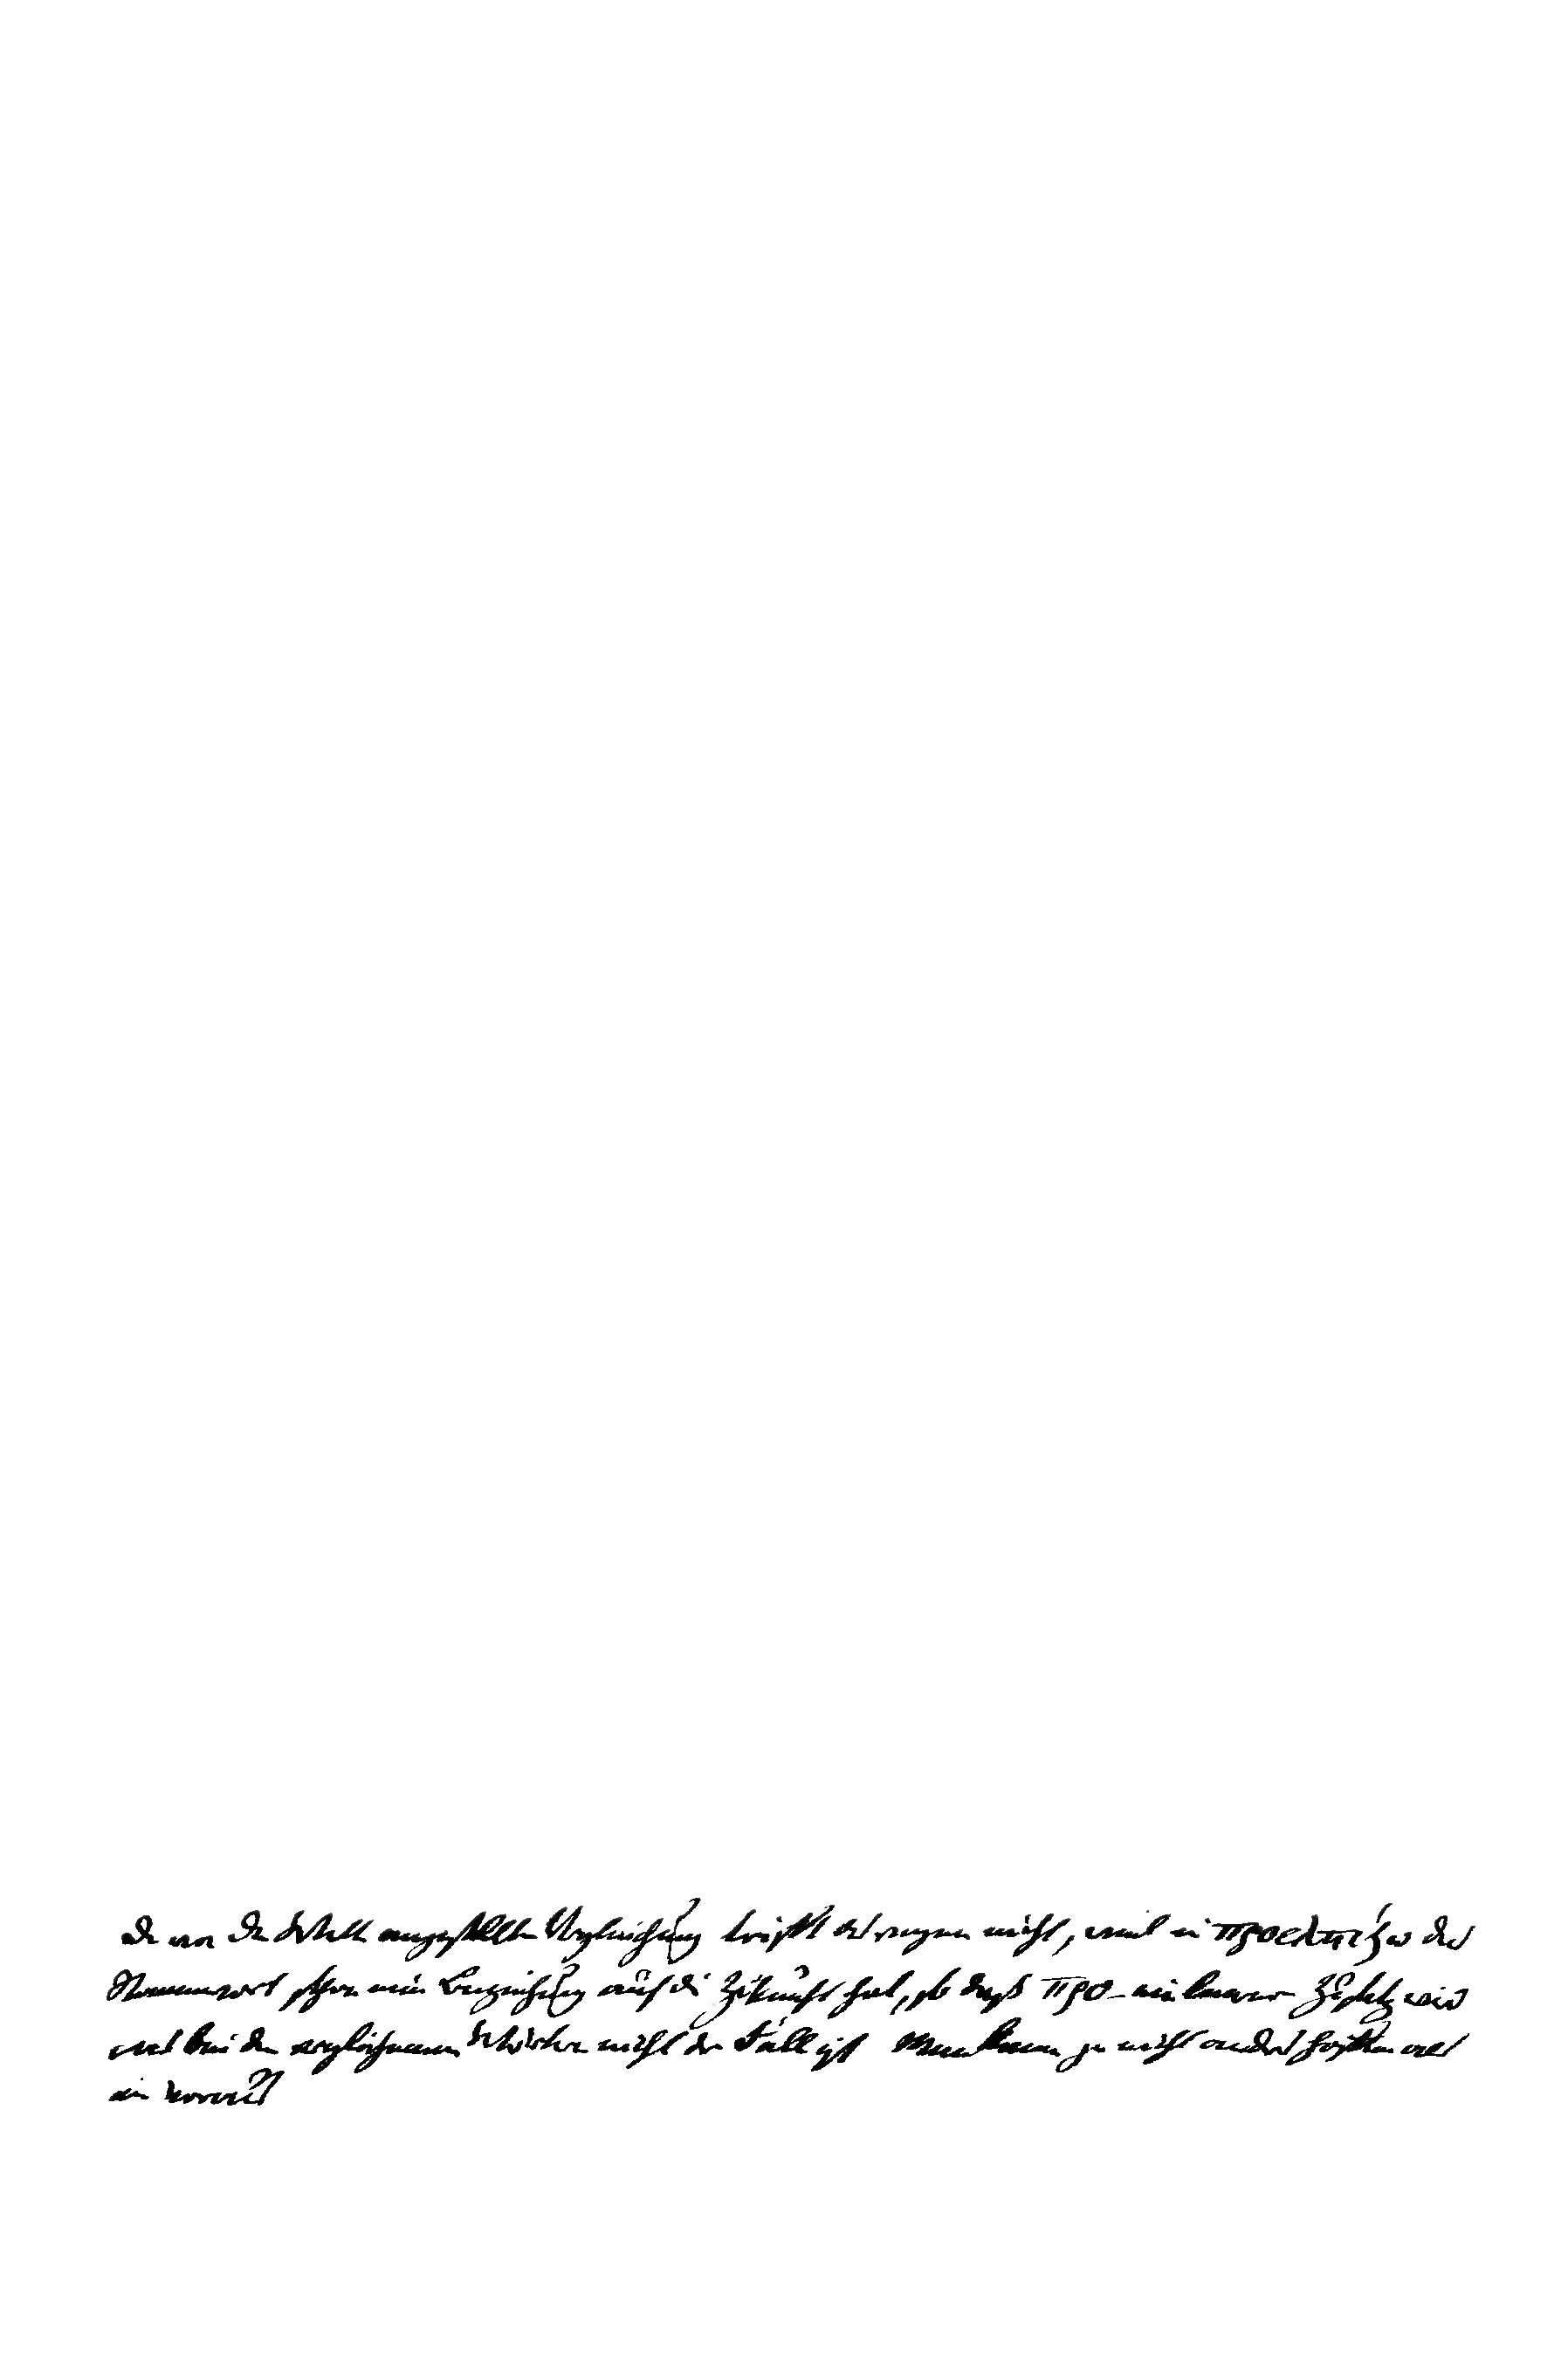 die von de Wette angestellte Vergleichung trifft deswegen nicht, weil in προελπίζω das
Stammwort schon eine Beziehung auf die Zukunft hat, so daß προ- ein leerer Zusatz wird
was bei den verglichenen Wörtern nicht der Fall ist Man kann ja nicht anders hoffen als
im voraus